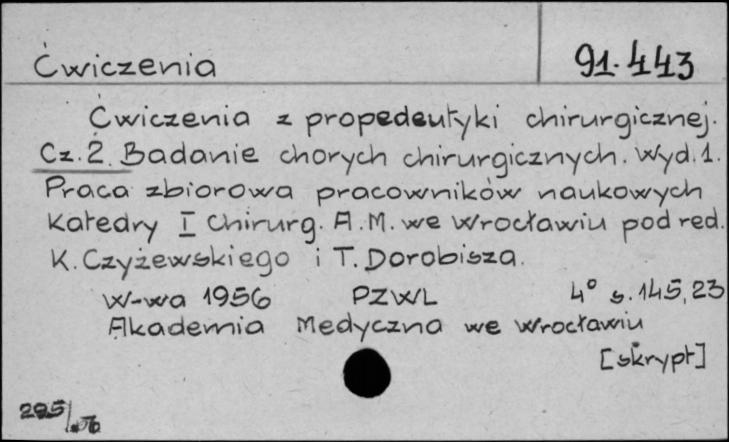 Ćwiczenia
91.443
Ćwiczenia z propedeutyki chirurgicznej.
Cz.2. Badanie chorych chirurgicznych. Wyd.1.
Praca zbiorowa pracowników naukowych
Katedry I Chirurg. A.M. we Wrocławiu pod red.
K. Czyżewskiego i T. Dorobisza.
W-wa 1956 PZWL 4° s.145,23
Akademia Medyczna we Wrocławiu
[skrypt]